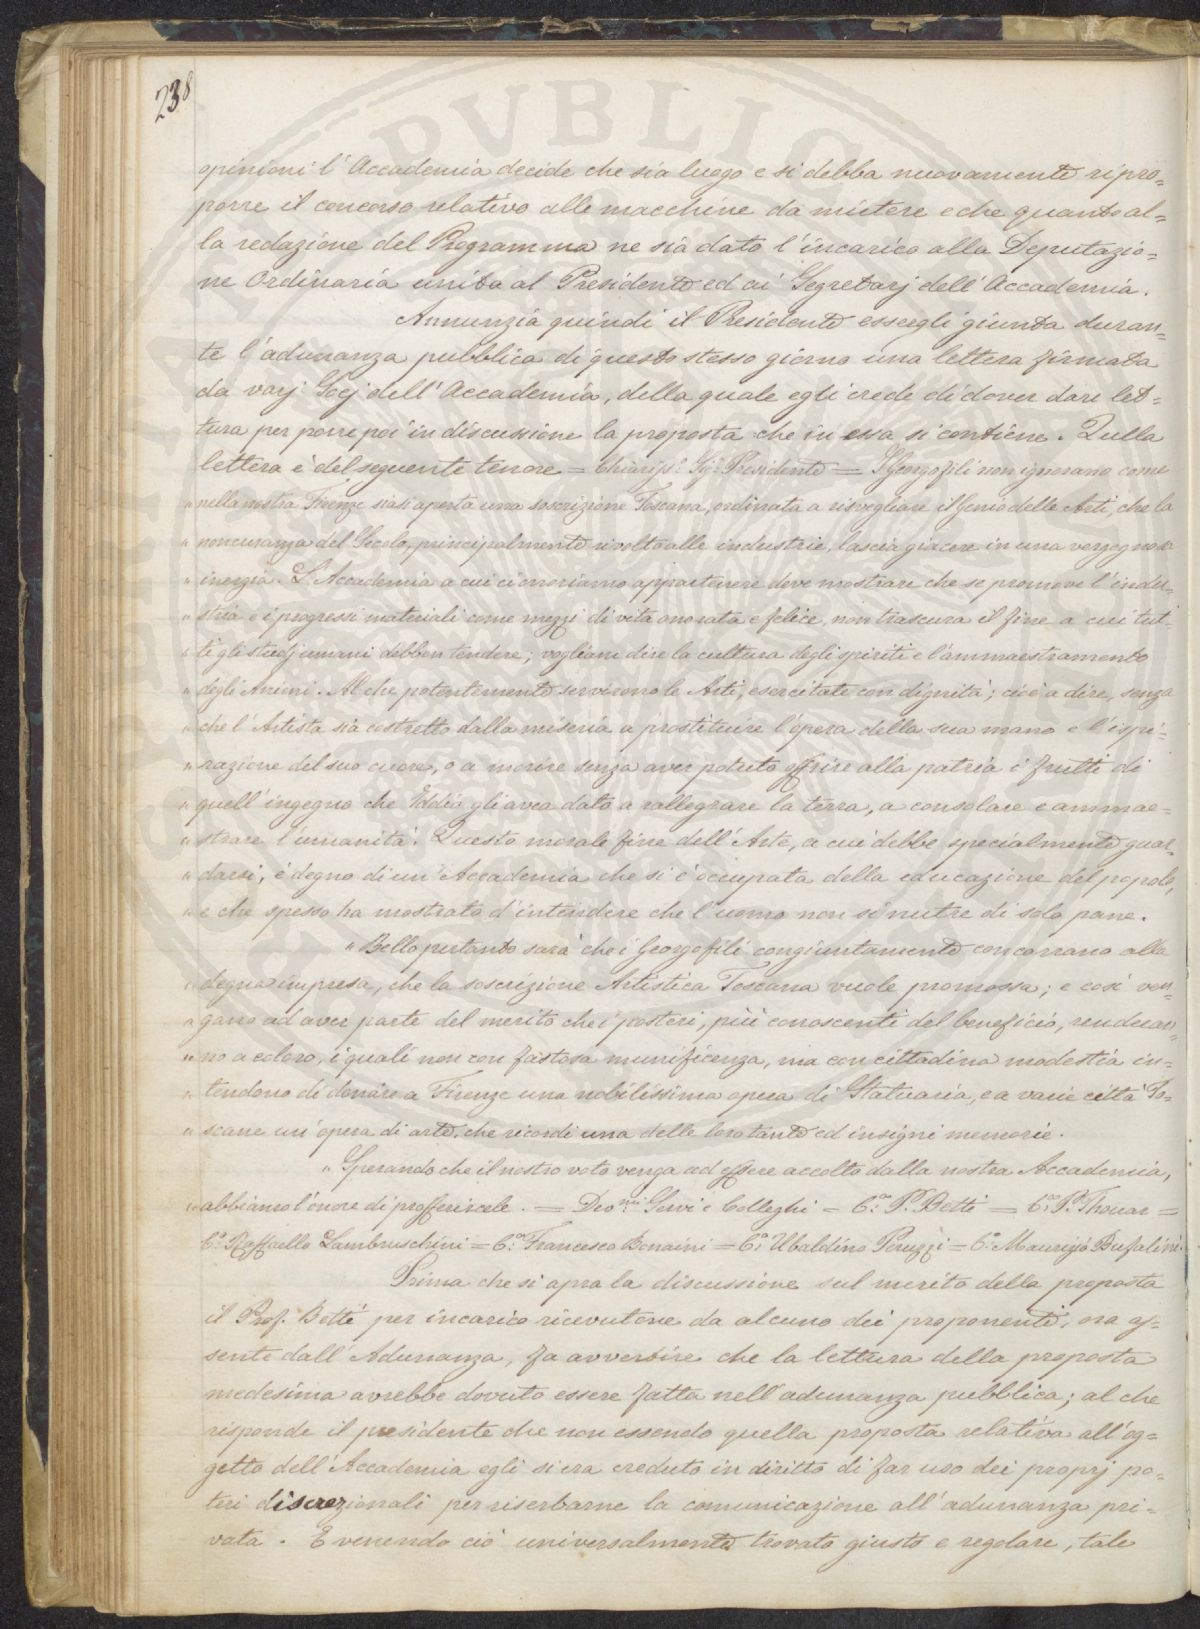 238
opinioni l'Accademia decide che sia luogo e si debba nuovamente ripro=
porre il concorso relativo alle macchine da mietere e che quanto al=
la redazione del Programma ne sia dato l'incarico alla Deputazio=
ne Ordinaria unita al Presidente ed ai Segretarj dell'Accademia.
Annunzia quindi il Presidente essergli giunta duran=
te l'adunanza pubblica di questo stesso giorno una lettera firmata
da varj Socj dell'Accademia, della quale egli crede di dover dare let=
tura per porre poi in discussione la proposta che in essa si contiene. Quella
lettera è del seguente tenore = Chiariss.º Sig.r Presidente = I Georgofili non ignorano come
" nella nostra Firenze siasi aperta una soscrizione Toscana, ordinata a risvegliare il Genio delle Arti, che la
" noncuranza del Secolo, principalmente rivolto alle industrie, lascia giacere in una vergognosa
" inerzia. L'Accademia a cui ci onoriamo appartenere deve mostrare che se promove l'indu=
" stria e i progressi materiali come mezzi di vita onorata e felice, non trascura il fine a cui tut=
" ti gli studj umani debbon tendere; vogliam dire la cultura degli spiriti e l'ammaestramento
" degli animi. Al che potentemente servirono le Arti, esercitate con dignità; cioè a dire, senza
" che l'Artista sia costretto dalla miseria a prostituire l'opera della sua mano e l'ispi=
" razione del suo cuore, o a morire senza aver potuto offrire alla patria i frutti di
" quell'ingegno che Iddio gli avea dato a rallegrare la terra, a consolare e ammae=
" strare l'umanità. Questo morale fine dell'Arte, a cui debbe specialmente guar=
" darsi, è degno di un'Accademia che si è occupata della educazione del popolo,
" e che spesso ha mostrato d'intendere che l'uomo non si nutre di solo pane.
" Bello pertanto sarà che i Georgofili congiuntamente concorrano alla
" degna impresa, che la soscrizione Artistica Toscana vuole promossa; e così ven=
" gano ad aver parte del merito che i posteri, più conoscenti del beneficio, renderan=
" no a coloro, i quali non con fastosa munificenza, ma con cittadina modestia in=
" tendono di donare a Firenze una nobilissima opera di Statuaria, e a varie città To=
" scane un'opera di arte, che ricordi una delle loro tante ed insigni memorie.
" Sperando che il nostro voto venga ad essere accolto dalla nostra Accademia,
" abbiamo l'onore di profferircele. = Dev.mi Servi e Colleghi = C.e P. Betti = C.e P. Thouar =
C.e Raffaello Lambruschini = C.e Francesco Bonaini = C.e Ubaldino Peruzzi = C.e Maurizio Bufalini.
Prima che si apra la discussione sul merito della proposta
il Prof. Betti per incarico ricevutone da alcuno dei proponenti, ora as=
sente dall'Adunanza, fa avvertire che la lettura della proposta
medesima avrebbe dovuto essere fatta nell'adunanza pubblica; al che
risponde il presidente che non essendo quella proposta relativa all'og=
getto dell'Accademia egli si era creduto in diritto di far uso dei proprj po=
teri discrezionali per riserbarne la comunicazione all'adunanza pri=
vata. E venendo ciò universalmente trovato giusto e regolare, tale
PVBLIC